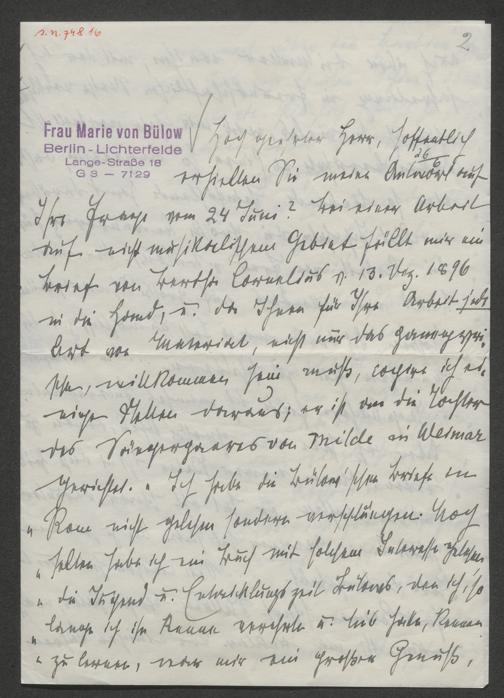 s.n. 748 16
2
Frau Marie von Bülow
Berlin - Lichterfelde
Lange-Straße 18
G 3 — 7129
Hoch geehrter Herr, hoffentlich
erhielten Sie meine Antwort auf
26/6
Ihre Frage vom 24 Juni? Bei einer Arbeit
auf nicht musikalischem Gebiet fällt mir ein
Brief von Bertha Cornelius v. 13. Dez. 1896
in die Hand, u. da Ihnen für Ihre Arbeit jede
Art von Material, nicht nur das
willkommen sein muß, copire ich ei-
nige Stellen daraus; er ist an die Tochter
des Sängerpaares von Milde in Weimar
gerichtet. „Ich habe die Bülow'schen Briefe
„Rom nicht gelesen sondern verschlungen. Noch
„selten habe ich ein Buch mit solchem Interesse gelesen
„die Jugend u. Entwicklungszeit Bülows, den ich so
„lange ich ihn kenne verehrte u. lieb habe, kennen
„zu lernen, war mir ein großer Genuß,